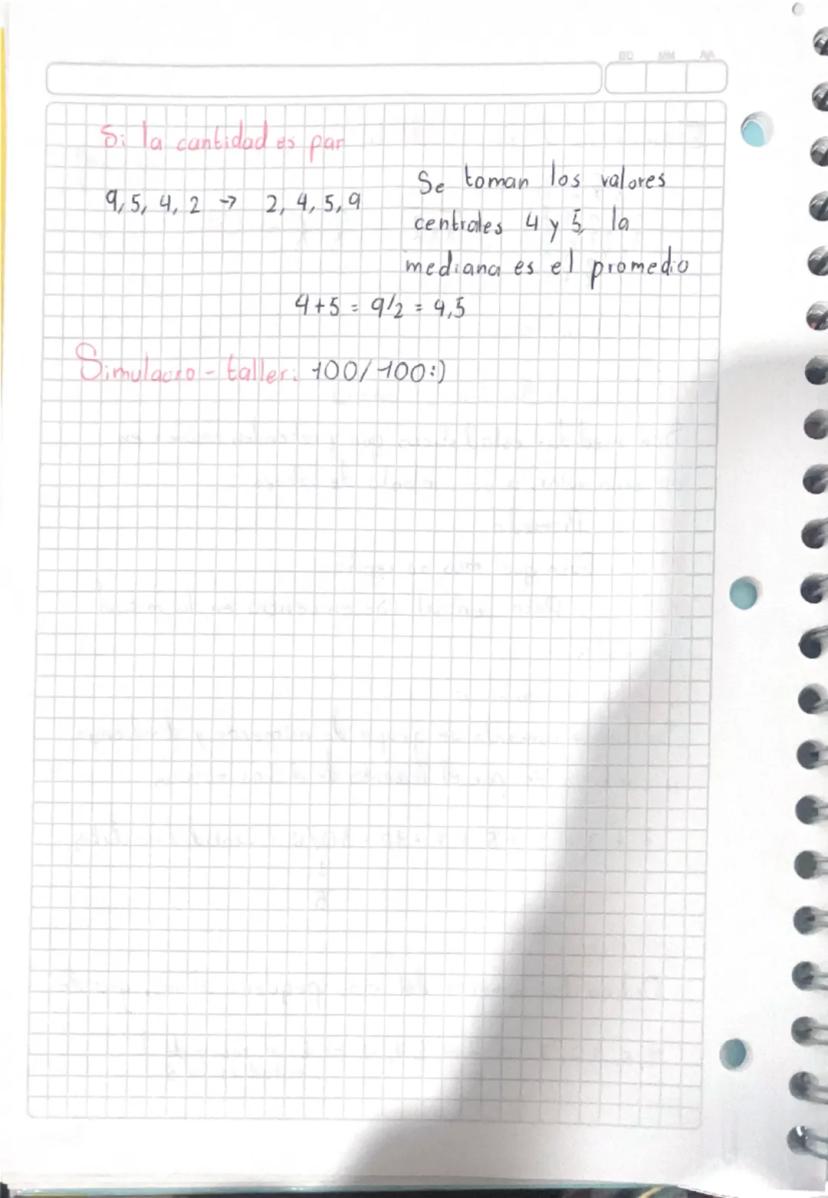 DD MM AA
Si la cantidad es par
9, 5, 4, 2 → 2, 4, 5, 9
Se toman los valores
centrales 4 y 5, la
mediana es el promedio
4+5 = 9/2 = 4,5
Simulacro - taller: 100/100:)